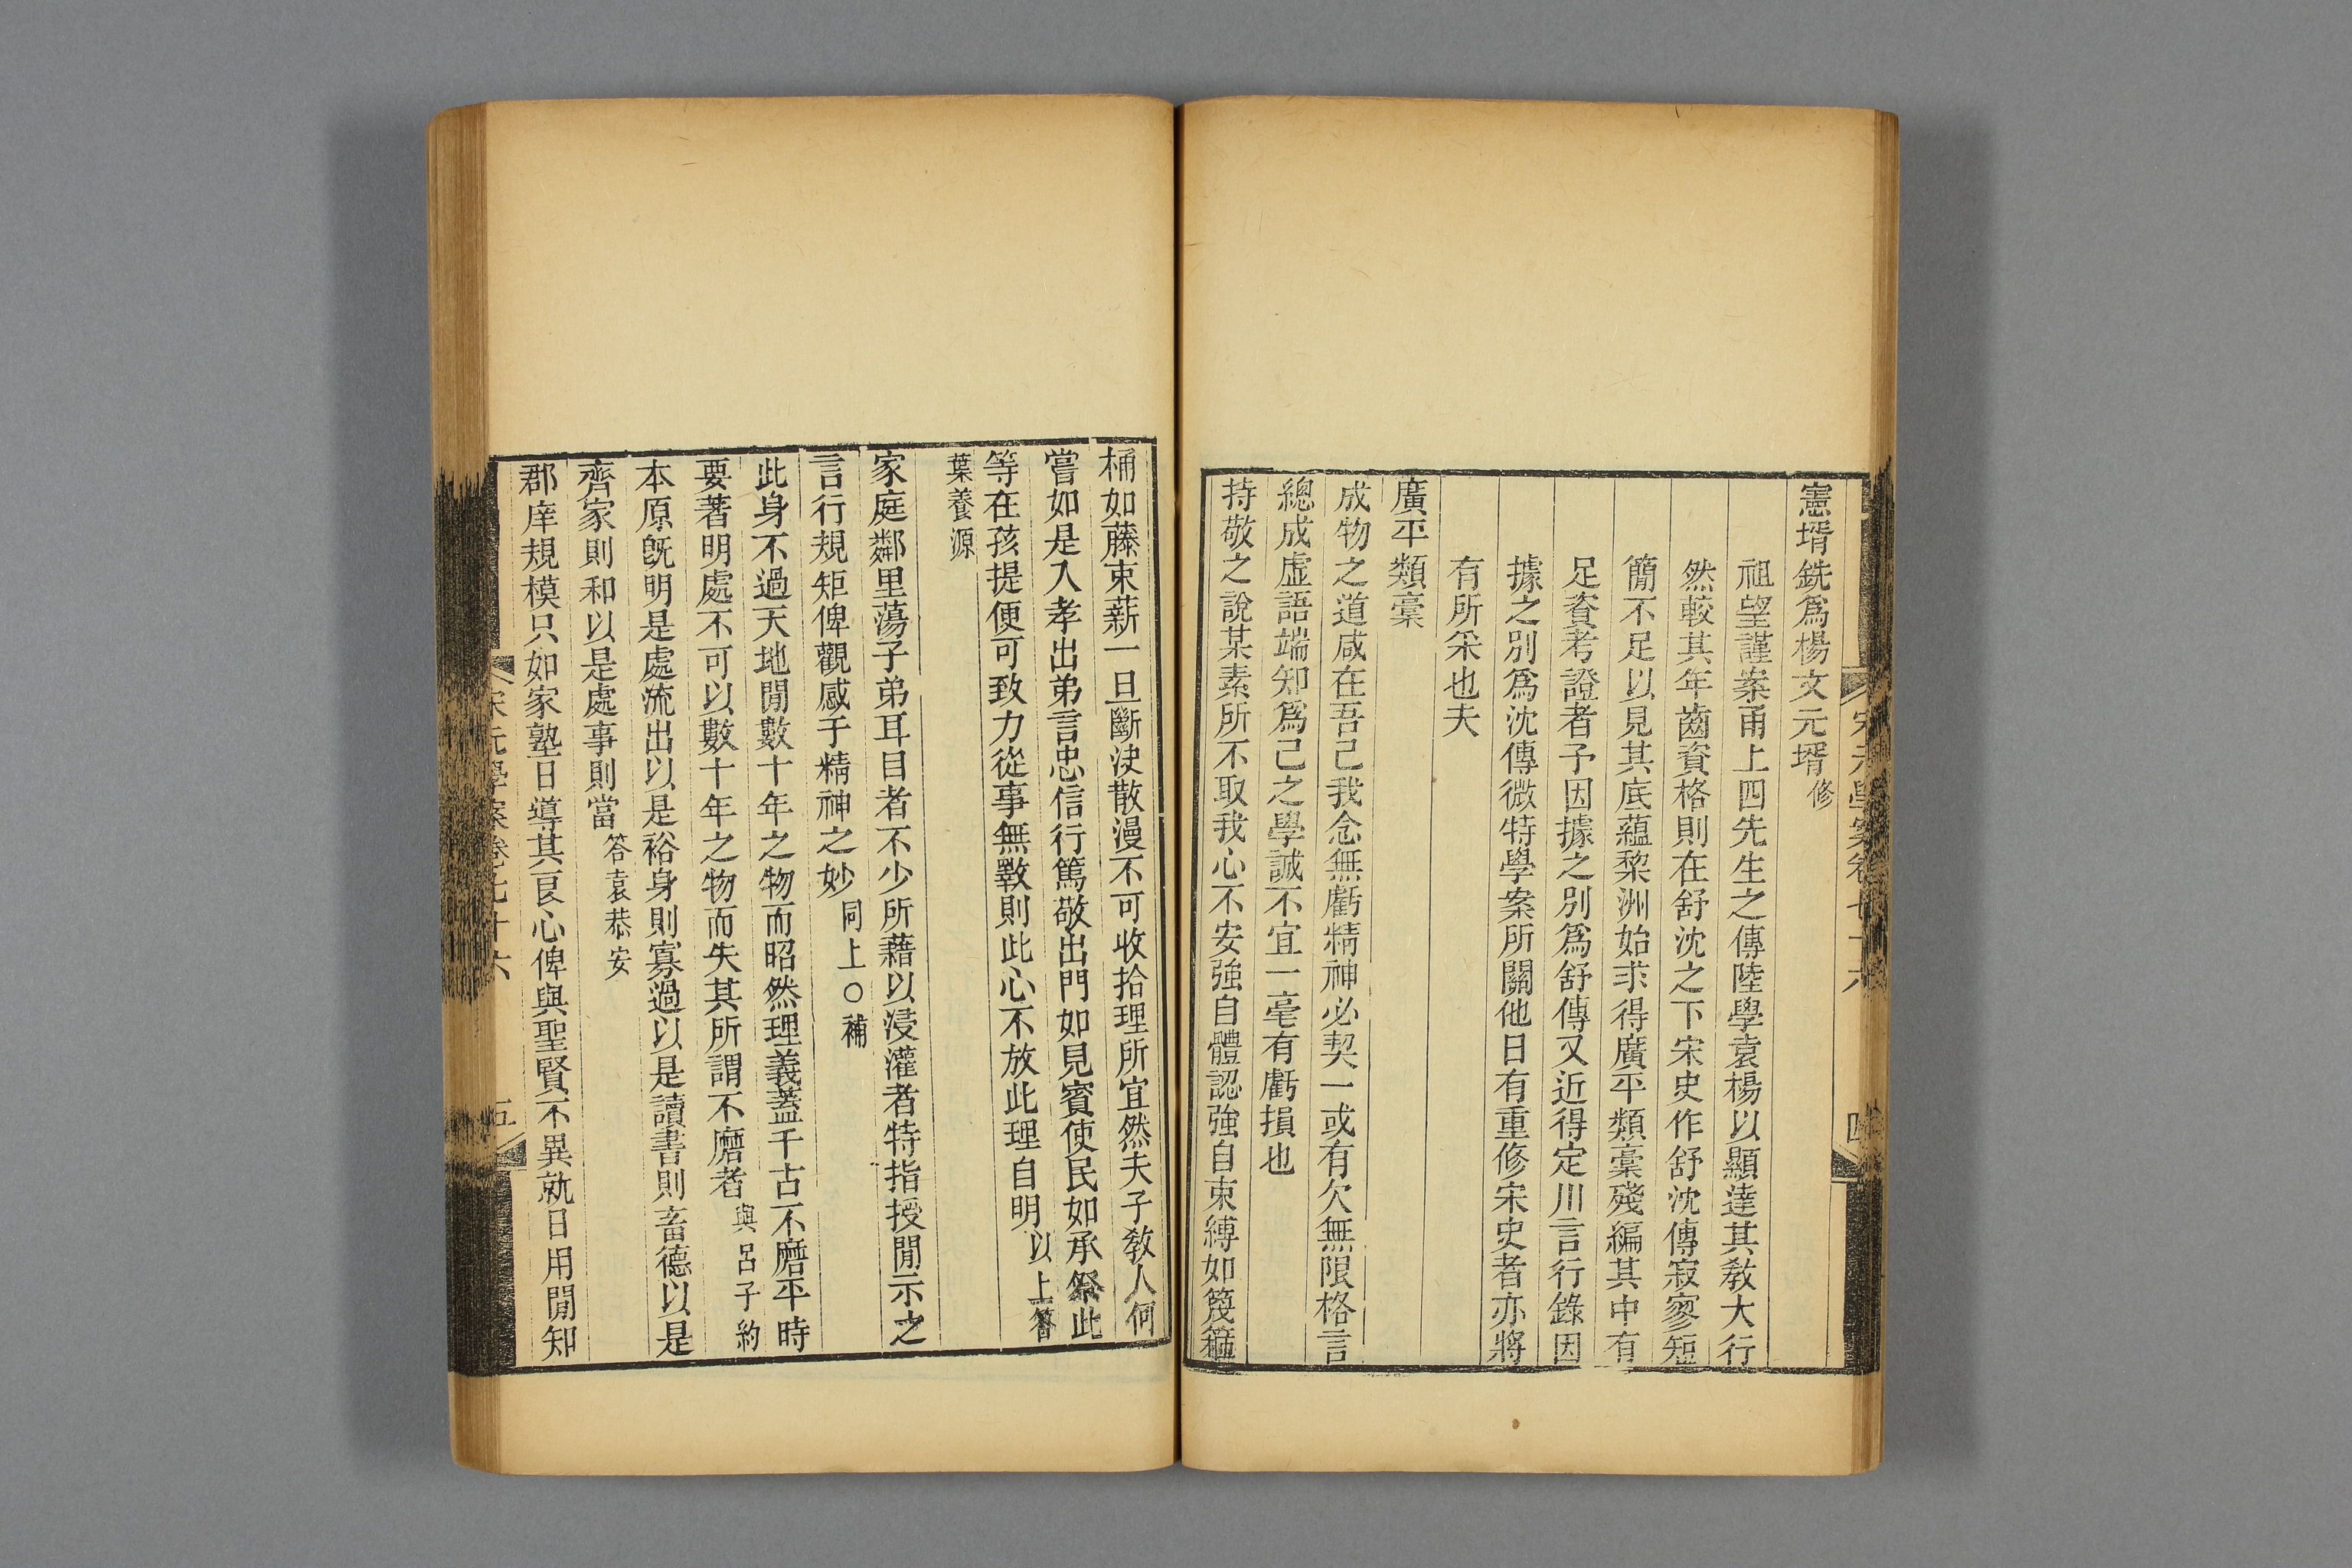 憲壻銑爲楊文元壻修
祖望謹案甬上四先生之傳陸學袁楊以顯達其敎大行
然較其年齒資格則在舒沈之下宋史作舒沈傳寂寥短
簡不足以見其底蘊棃洲始求得廣平類稾殘編其中有
足資考證者予因據之別爲舒傳又近得定川言行錄因
據之別爲沈傳微特學案所關他日有重修宋史者亦將
有所采也夫
廣平類稾
成物之道咸在吾己我念無虧精神必契一或有欠無限格言
總成虛語端知爲己之學誠不宜一毫有虧損也
持敬之說某素所不取我心不安強自體認強自束縛如篾箍
桶如藤束薪一旦斷決散漫不可收拾理所宜然夫子敎人何
嘗如是入孝出弟言忠信行篤敬出門如見賓使民如承祭此
等在孩提便可致力從事無斁則此心不放此理自明以上答
葉養源
家庭鄰里蕩子弟耳目者不少所藉以浸灌者特指授閒示之
言行規矩俾觀感于精神之妙同上○補
此身不過天地閒數十年之物而昭然理義蓋千古不磨平時
要著明處不可以數十年之物而失其所謂不磨者與呂子約
本原旣明是處流出以是裕身則寡過以是讀書則畜德以是
齊家則和以是處事則當答袁恭安
郡庠規模只如家塾日導其良心俾與聖賢不異就日用閒知
宋元學案卷七十六
五